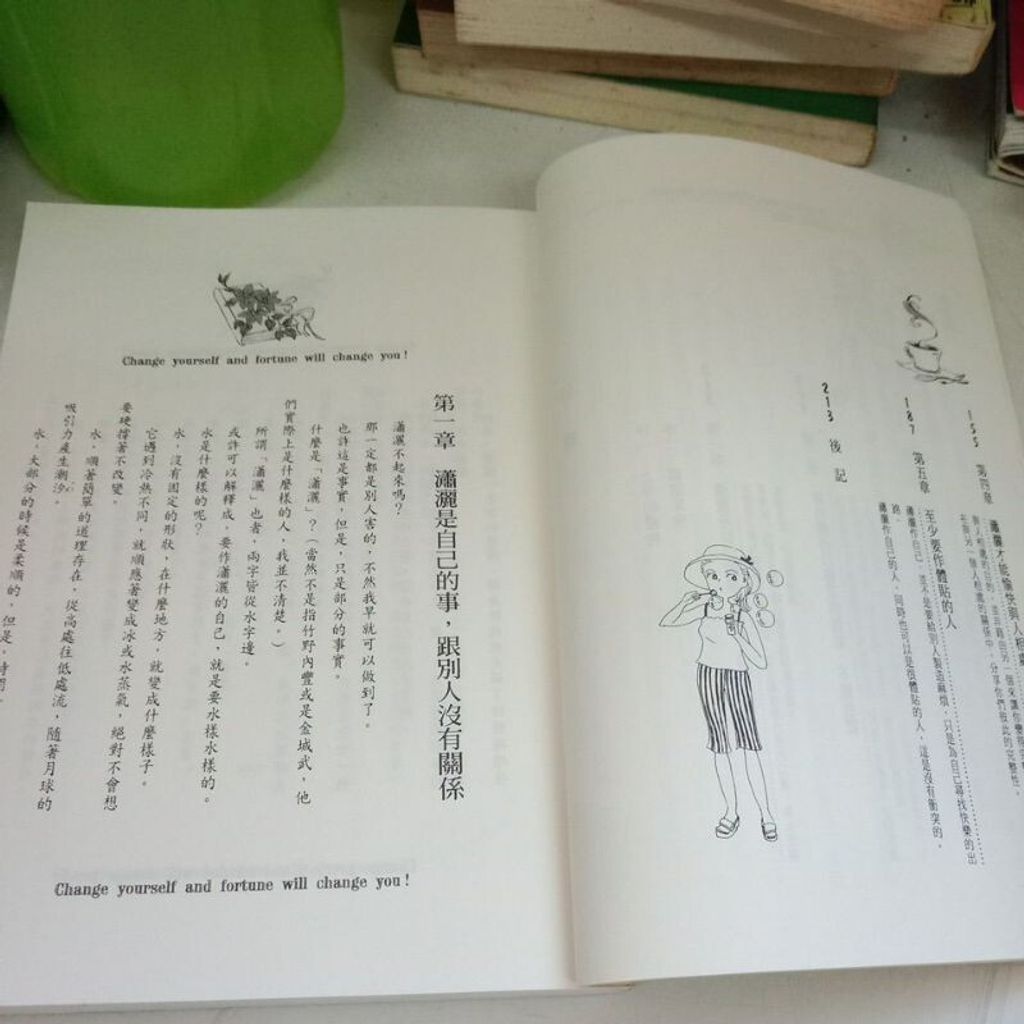 155 第四章
瀟灑才能愉快與人相處
187 第五章
至少要作體貼的人
瀟灑作自己,並不是要給別人製造麻煩,只是為自己尋找快樂的出
路。
瀟灑作自己的人,同時也可以是很體貼的人,這是沒有衝突的。
213 後記
Change yourself and fortune will change you!
第一章 瀟灑是自己的事,跟別人沒有關係
瀟灑不起來嗎?
那一定都是別人害的,不然我早就可以做到了。
也許這是事實,但是,只是部分的事實。
什麼是「瀟灑」?(當然不是指竹野內豐或是金城武,他
們實際上是什麼樣的人,我並不清楚。)
所謂「瀟灑」也者,兩字皆從水字邊。
或許可以解釋成,要作瀟灑的自己,就是要水樣水樣的。
水是什麼樣的呢?
水,沒有固定的形狀,在什麼地方,就變成什麼樣子。
它遇到冷熱不同,就順應著變成冰或水蒸氣,絕對不會想
要硬撐著不改變。
水,順著簡單的道理存在,從高處往低處流,隨著月球的
吸引力產生潮汐。
水,大部分的時候是柔順的,但是,
Change yourself and fortune will change you!